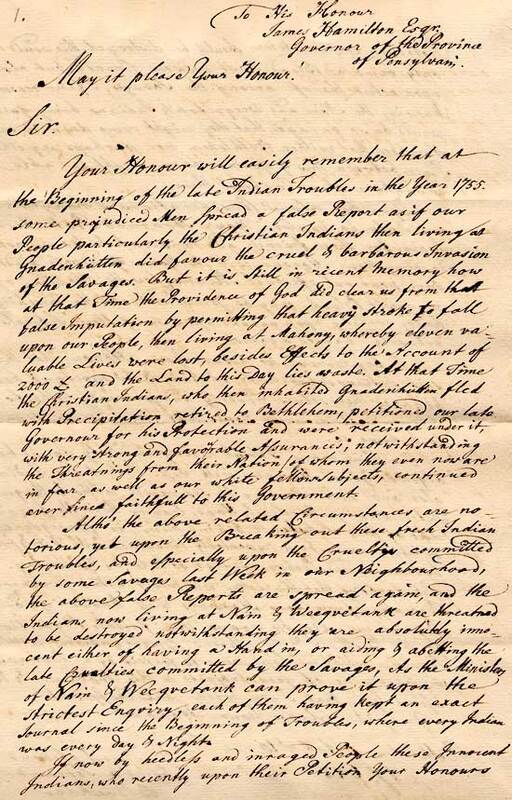 1.
To His Honour
James Hamilton Esqr.
Governor of the Province
of Pensylvan:
May it please Your Honour!
Sir.
Your Honour will easily remember that at
the Beginning of the late Indian Troubles in the Year 1755.
some prejudiced Men spread a false Report as if our
People particularly the Christian Indians then living at
Gnadenhütten did favour the cruel & barbarous Invasion
of the Savages. But it is still in recent Memory how
at that Time the Providence of God did clear us from that
false Imputation by permitting that heavy stroke to fall
upon our People, then living at Mahony, whereby eleven va-
luable Lives were lost, besides Effects to the Account of
2000 £ and the Land to this Day lies waste. At that Time
the Christian Indians, who then inhabited Gnadenhütten fled
with Precipitation retired to Bethlehem, petitioned our late
Governour for his Protection and were received under it,
with very strong and favorable Assurances; notwithstanding
the Threatnings from their Nation, of whom they even now are
in fear, as well as our white fellow subjects, continued
ever since faithfull to this Government.
Altho' the above related Circumstances are no-
torious, yet upon the Breaking out these fresh Indian
Troubles, and especially upon the Cruelties committed
by some Savages last Week in our Neighbourhood,
the above false Reports are spread again, and the
Indians now living at Nain & Weequetank are threatned
to be destroyed notwithstanding they are absolutely inno-
cent either of having a Hand in, or aiding & abetting the
late Cruelties committed by the Savages, As the Ministers
of Nain & Weequetank can prove it upon the
strictest Enquiry, each of them having kept an exact
Journal since the Beginning of Troubles, where every Indian
was every day & Night.
If now by heedless and inraged People these Innocent
Indians, who recently upon their Petition Your Honours